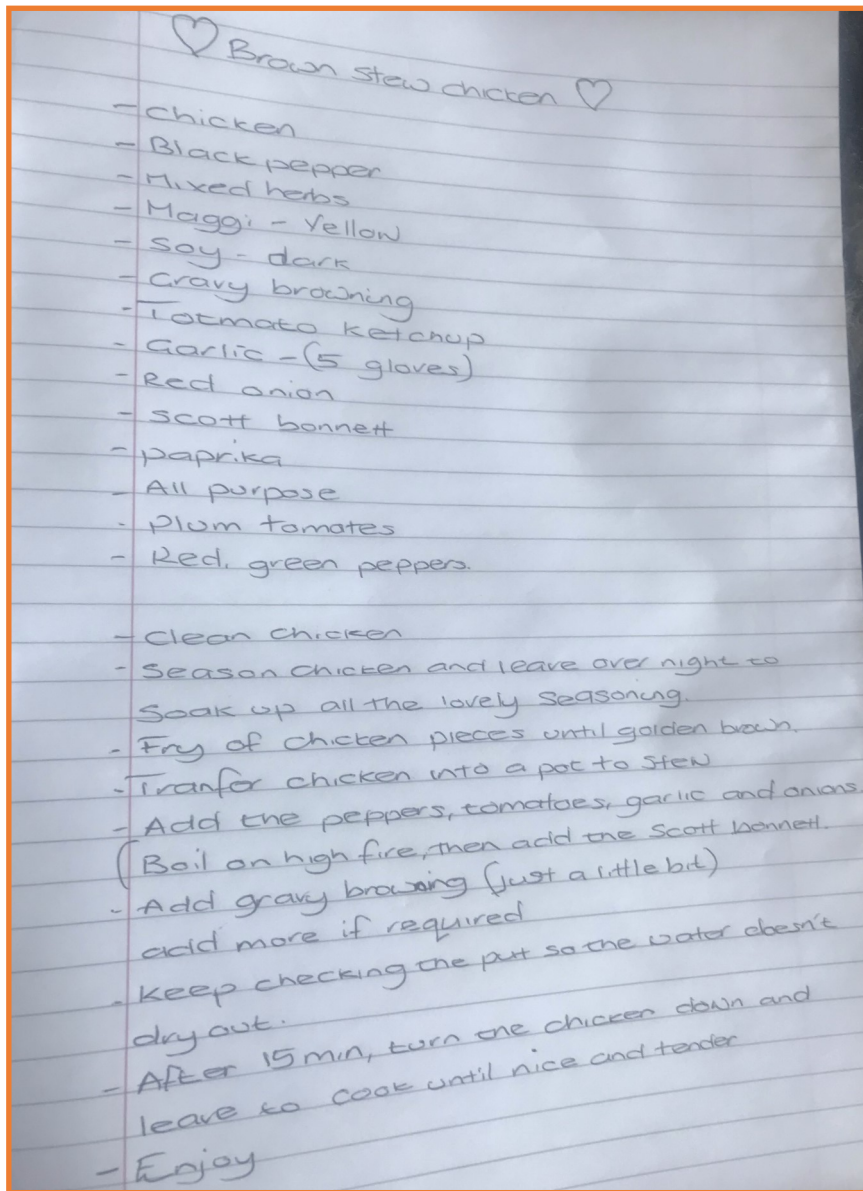 Brown Stew chicken
- Chicken
- Black pepper
- Mixed herbs
- Maggi - Yellow
- Soy - dark
- Gravy browning
- Totmato ketchup
- Garlic - (5 gloves)
- Red onion
- Scott bonnett
- paprika
- All purpose
- Plum tomates
- Red, green peppers.
- Clean chicken
- Season chicken and leave over night to
soak up all the lovely seasoning.
- Fry of chicken pieces until golden brown.
- Tranfor chicken into a pot to stew
- Add the peppers, tomatoes, garlic and onions.
(Boil on high fire, then add the Scott bonnett.
- Add gravy browning (just a little bit)
add more if required
- Keep checking the putt so the water doesn't
dry out.
- After 15 min, turn the chicken down and
leave to cook until nice and tender
- Enjoy